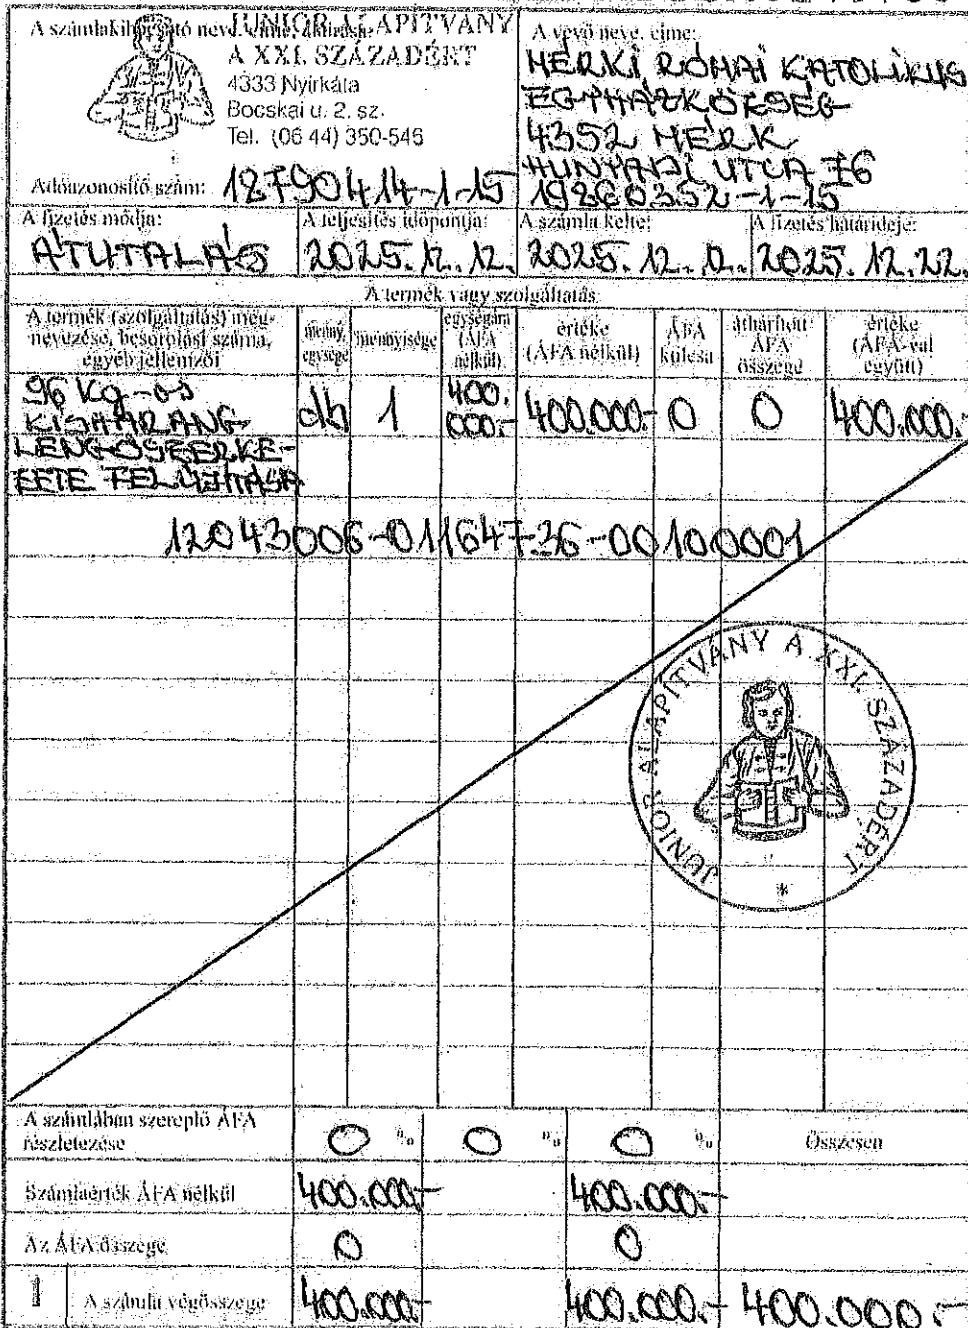 A számlakibocsátó neve, címe, aláírása:
JUNIOR ALAPÍTVÁNY
A XXI. SZÁZADÉRT
4333 Nyírkáta
Bocskai u. 2. sz.
Tel. (06 44) 350-546
Adóazonosító szám: 18790414-1-15
A vevő neve, címe:
MÉRKI RÓMAI KATOLIKUS
EGYHÁZKÖZSÉG
4352 MÉRK
HUNYADI UTCA 76
19860352-1-15
A fizetés módja:
ÁTUTALÁS
A teljesítés időpontja:
2025. 12. 12.
A számla kelte:
2025. 12. 12.
A fizetés határideje:
2025. 12. 22.
A termék vagy szolgáltatás
A termék (szolgáltatás) meg-
nevezése, besorolási száma,
egyéb jellemzői
menny. egysége
mennyisége
egységára (ÁFA nélkül)
értéke (ÁFA nélkül)
ÁFA kulcsa
áthárított ÁFA összege
értéke (ÁFA-val együtt)
96 kg-os
KISHARANG
LENGŐSZERKE-
ZETE FELÚJÍTÁSA
db 1 400.000.- 400.000.- 0 0 400.000.-
12043006-01164736-00100001
JUNIOR ALAPÍTVÁNY A XXI. SZÁZADÉRT
*
A számlában szereplő ÁFA
részletezése
0 % 0 % 0 % Összesen
Számlaérték ÁFA nélkül 400.000.- 400.000.-
Az ÁFA összege 0 0
1 A számla végösszege 400.000.- 400.000.- 400.000.-